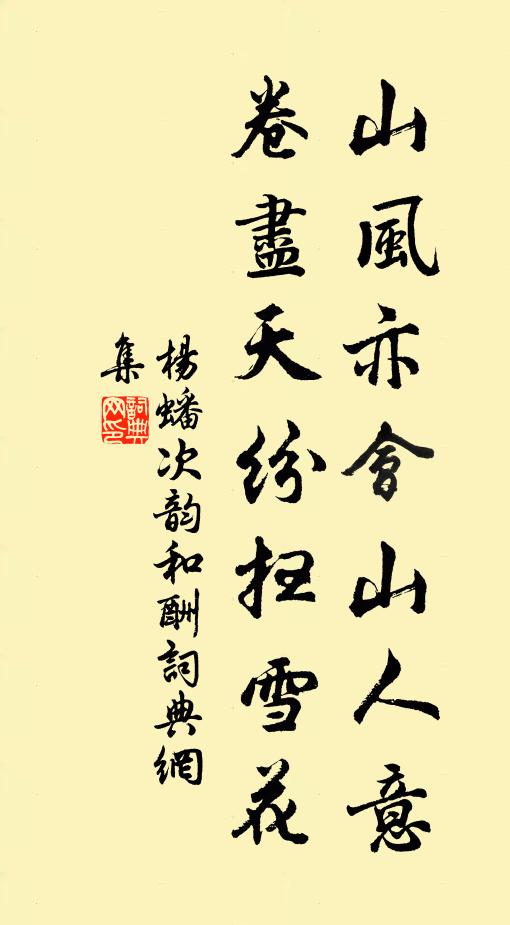 山風亦會山人意
卷盡天紛扫雪花
楊蟠次韵和酬詞典網
集
詞典
网印